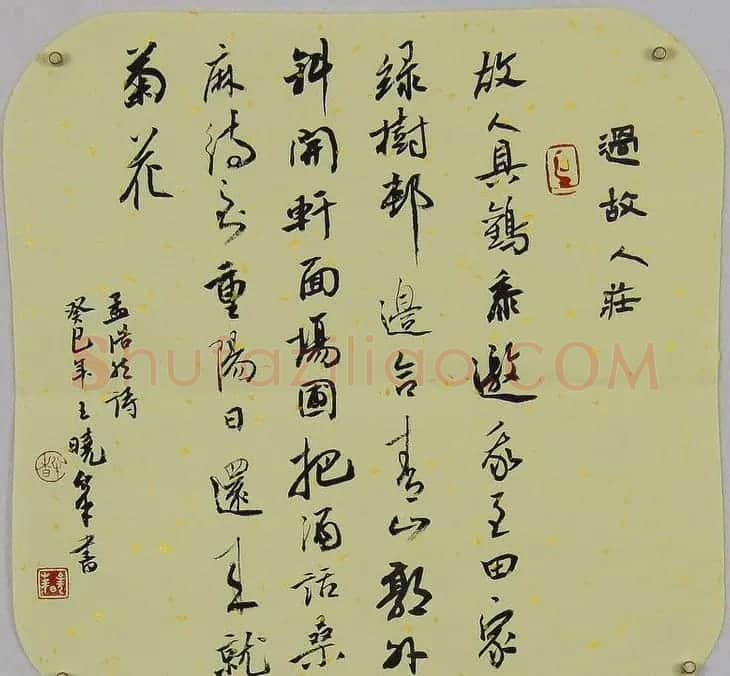 過故人莊
故人具鷄黍邀我至田家
綠樹邨邊合青山郭外
斜開軒面場圃把酒話桑
麻待到重陽日還来就
菊花
孟浩然詩
癸巳年王曉筆書
Shufaziliao.COM